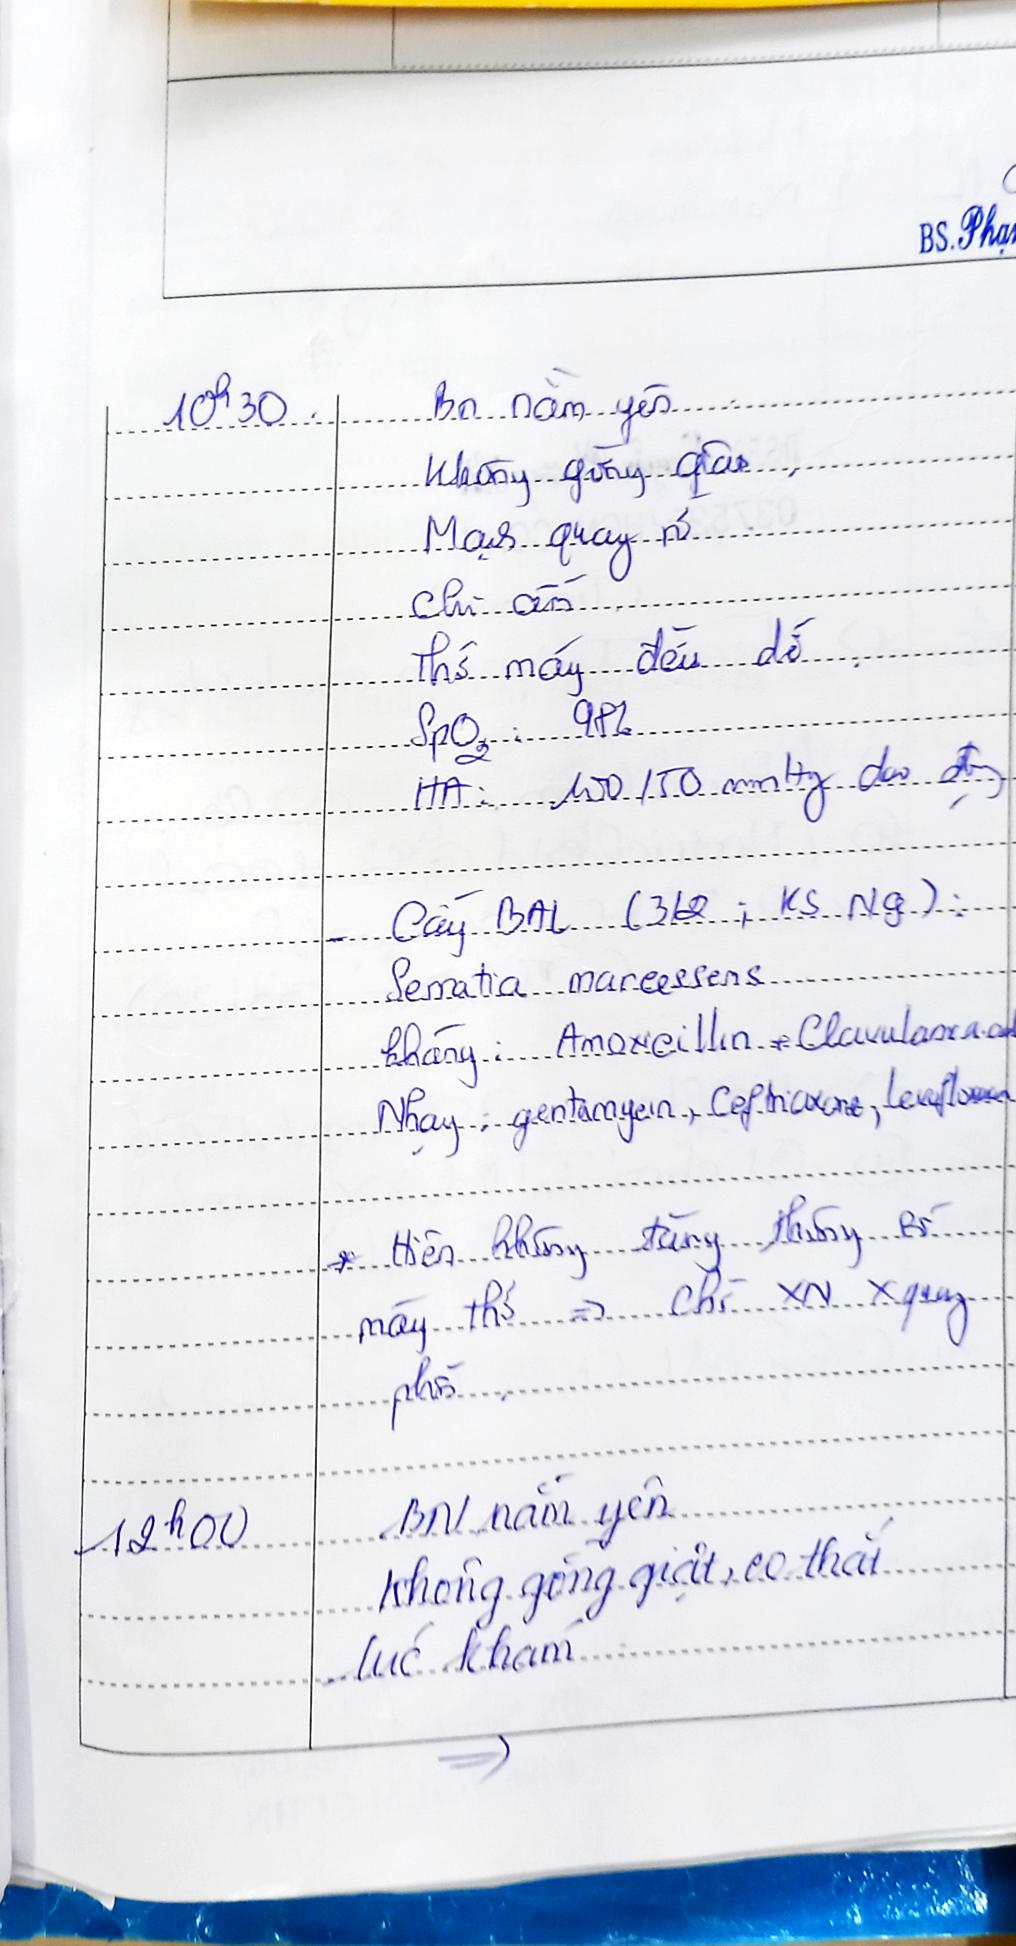 BS. Phạm
10h30 Bn nằm yên
Không gồng giật,
Mạch quay rõ
Chi ấm
Thở máy đều dễ.
SpO2: 98%
HA: 100/50 mmHg dao động
- Cấy BAL ( ; KS Ng):
Serratia marcessens
kháng: Amoxcillin + Clavulanic
Nhạy: gentamycin, Ceftriaxone,
* Hiện không tăng thông số
máy thở => Chỉ XN Xquang
phổi.
12h00 BN nằm yên
Không gồng giật, co thắt
lúc khám
=>